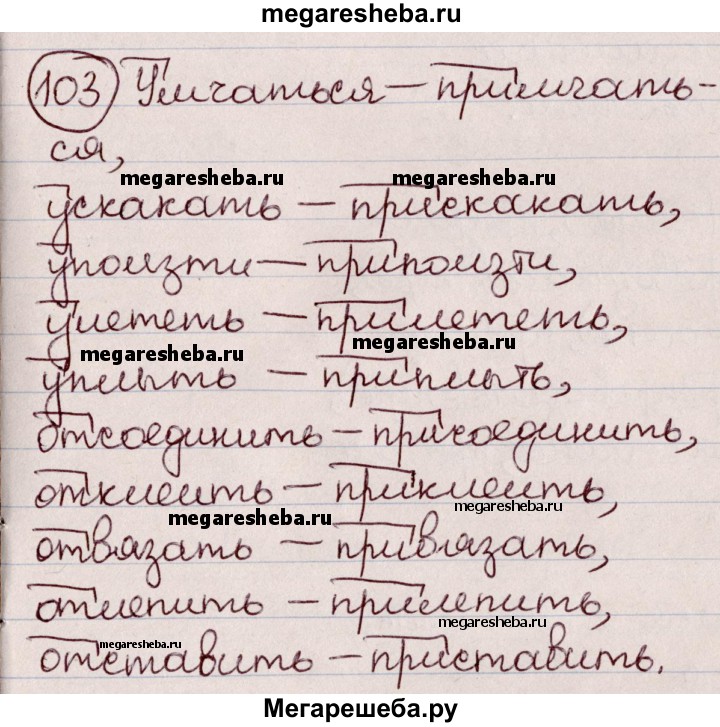 megaresheba.ru
103 Умчаться – примчать-
ся,
megaresheba.ru megaresheba.ru
ускакать – прискакать,
уползти – приползти,
улететь – прилететь,
megaresheba.ru megaresheba.ru
уплыть – приплыть,
отсоединить – присоединить,
отклеить – приклеить,
megaresheba.ru megaresheba.ru
отвязать – привязать,
отлепить – прилепить,
megaresheba.ru megaresheba.ru
отставить – приставить.
Мегарешеба.ру